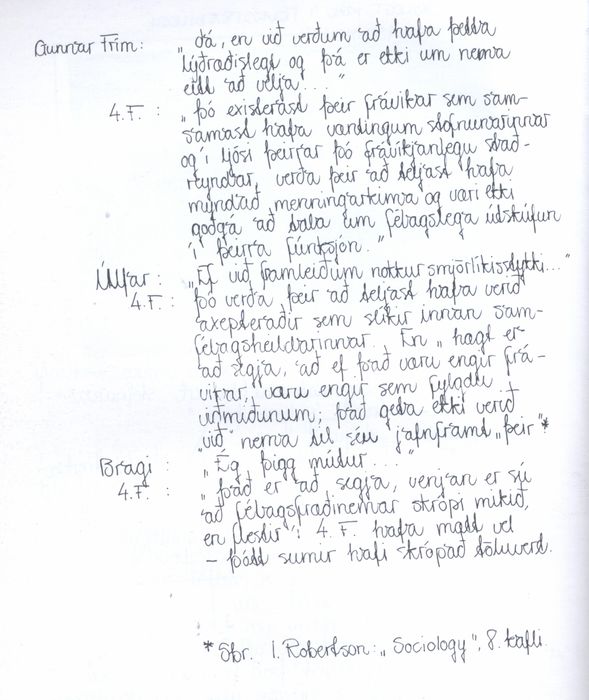 Gunnar Frím: „Já, en við verðum að hafa þetta
lýðræðislegt og þá er ekki um nema
eitt að velja!..."
4.F. : „Þó existerast þeir frávikar sem sam-
samast hafa vandingum stofnunarinnar
og í ljósi þeirrar þó frávikjanlegu stað-
reyndar, verða þeir að teljast hafa
myndað menningarkima og væri ekki
goðgá að tala um félagslega útskúfun
í þeirra fúnksjón."
Úlfar: „Ef við framleiðum nokkur smjörlíkisstykki..."
4.F. : Þó verða þeir að teljast hafa verið
axepteraðir sem slíkir innan sam-
félagsheildarinnar. En „hægt er
að segja, að ef það væru engir frá-
vikar, væru engir sem fylgdu
viðmiðunum; það geta ekki verið
„við" nema til séu jafnframt „þeir"*
Bragi : „Ég þigg múdur..."
4.F. : „Það er að segja, venjan er sú
að félagsfræðinemar skrópi mikið,
en flestir í 4. F. hafa mætt vel
– þótt sumir hafi skrópað töluvert.
* Sbr. I. Robertson: „Sociology", 8. kafli.